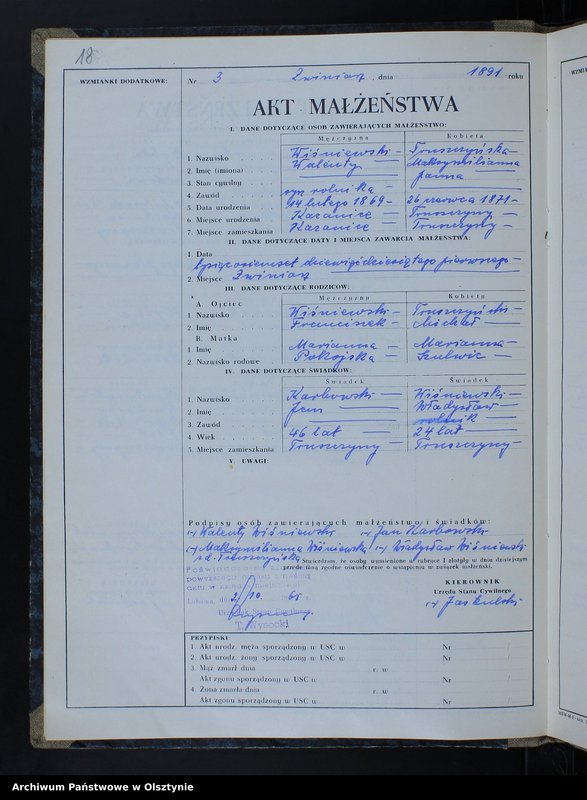 18
WZMIANKI DODATKOWE:
Nr 3 Zwiniarz, dnia 1891 roku
AKT MAŁŻEŃSTWA
I. DANE DOTYCZĄCE OSÓB ZAWIERAJĄCYCH MAŁŻEŃSTWO:
Mężczyzna Kobieta
1. Nazwisko Wiśniewski — Truszczyńska —
2. Imię (imiona) Walenty — Maksymilianna
3. Stan cywilny — panna —
4. Zawód syn rolnika —
5. Data urodzenia 14 lutego 1869 — 26 czerwca 1871 —
6. Miejsce urodzenia Kazanice — Truszczyny —
7. Miejsce zamieszkania Kazanice — Truszczyny —
II. DANE DOTYCZĄCE DATY I MIEJSCA ZAWARCIA MAŁŻEŃSTWA:
1. Data
tysiąc osiemset dziewięćdziesiątego pierwszego —
2. Miejsce Zwiniarz
III. DANE DOTYCZĄCE RODZICÓW:
Mężczyzny Kobiety
A. Ojciec
1. Nazwisko Wiśniewski — Truszczyński —
2. Imię Franciszek — Michał —
B. Matka
1. Imię Marianna — Marianna —
2. Nazwisko rodowe Pokojska — Szulwic —
IV. DANE DOTYCZĄCE ŚWIADKÓW:
Świadek Świadek
1. Nazwisko Karbowski — Wiśniewski —
2. Imię Jan — Władysław —
3. Zawód — rolnik —
4. Wiek 46 lat — 24 lat —
5. Miejsce zamieszkania Truszczyny — Truszczyny —
V. UWAGI:
Podpisy osób zawierających małżeństwo i świadków:
-) Walenty Wiśniewski -) Jan Karbowski
-) Maksymilianna Wiśniewska -) Władysław Wiśniewski
zd. Truszczyńska
Stwierdzam, że osoby wymienione w rubryce I złożyły w dniu dzisiejszym
przede mną zgodne oświadczenie o wstąpieniu w związek małżeński.
KIEROWNIK
Urzędu Stanu Cywilnego
T. Wysocki
PRZYPISKI:
1. Akt urodz. męża sporządzony w USC w Nr /
2. Akt urodz. żony sporządzony w USC w Nr /
3. Mąż zmarł dnia r. w
Akt zgonu sporządzony w USC w Nr /
4. Żona zmarła dnia r. w
Akt zgonu sporządzony w USC w Nr /
Archiwum Państwowe w Olsztynie